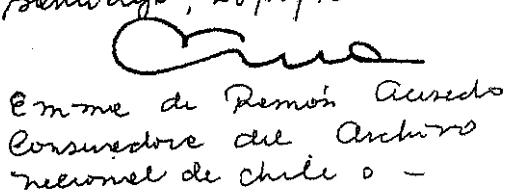 Santiago,
Emma de Ramón Acevedo
Conservadora del Archivo
Nacional de Chile. -